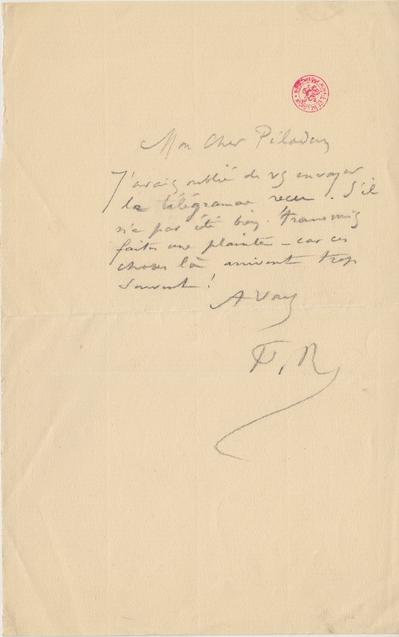 Mon cher Péladan
J'avais oublié de vs envoyer
le télégramme recu. S'il
n'a pas été bien transmis
faites une plainte – car ces
choses là arrivent trop
souvent !
A vous
F. R